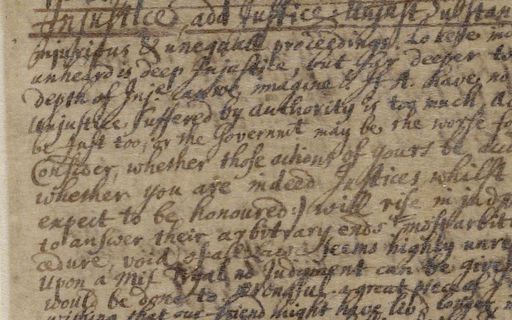 Injustice. add Justice. Unjust. Substan
Injurious & unequall proceedings. To keep
unheard is deep Injustice, but far deeper to
depth of Inje. can we imagine is If A. have no
Unjustice suffered by Authority is too much, a
be Just too, or the Governmt may be the worse fo
Consider, whether those actions of yours be
whether you are indeed Justices whilst
expect to be honoured:) will rise in judg
to answer their arbitrary ends most arbit
cedure, void of all seems highly unre
Upon a Mis no Judgment can be give
would be done to wrongful. a great piece of
withing that our friend might have liv'd longer